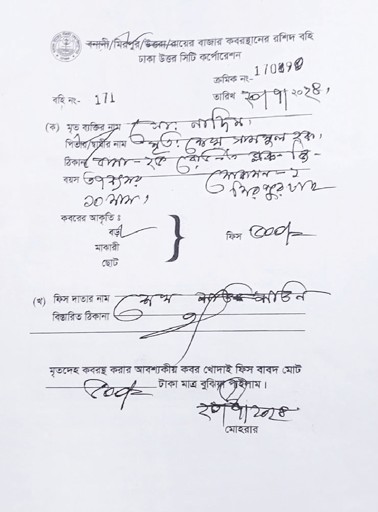 বনানী/মিরপুর/উত্তরা/রায়ের বাজার কবরস্থানের রশিদ বহি
ঢাকা উত্তর সিটি কর্পোরেশন
ক্রমিক নং-
বহি নং- 171
তারিখ ২০/৭/২০২৪,
(ক) মৃত ব্যক্তির নাম মো: নাদিম।
পিতার/স্বামীর নাম মৃত: শেখ সামসুল হক।
ঠিকানা বাসা-২৩
বয়স ৩৭ বৎসর
১০ মাস, মিরপুর
কবরের আকৃতি ঃ
বড়
মাঝারী
ছোট
ফিস ৫০০/=
(খ) ফিস দাতার নাম শেখ
বিস্তারিত ঠিকানা
মৃতদেহ কবরস্থ করার আবশ্যকীয় কবর খোদাই ফিস বাবদ মোট
৫০০/= টাকা মাত্র বুঝিয়া পাইলাম।
২০/৭/২০২৪
মোহরার